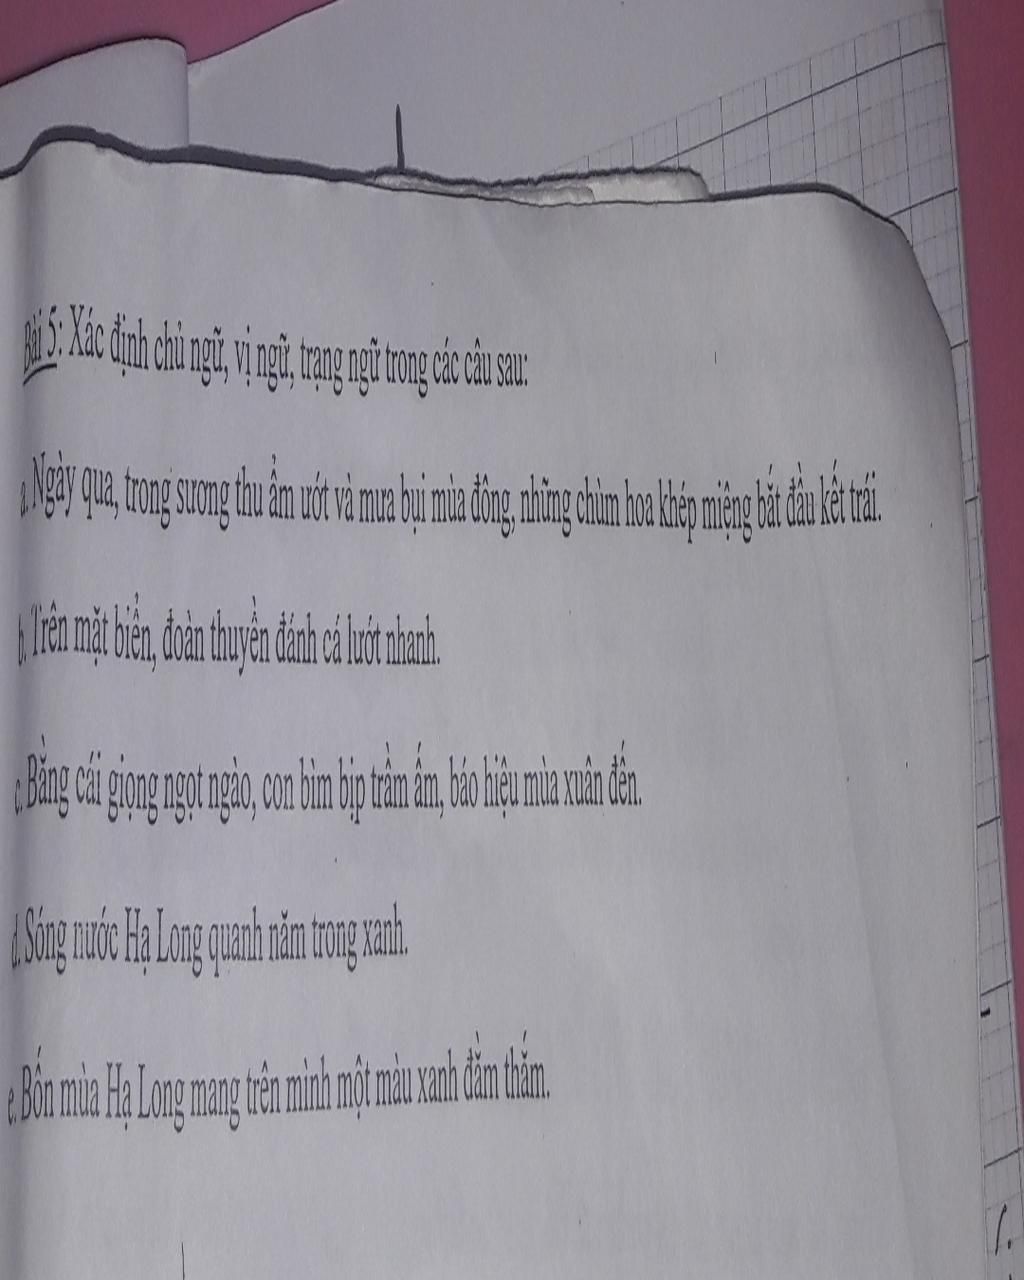 Bài 5: Xác định chủ ngữ, vị ngữ, trạng ngữ trong các câu sau:
a. Ngày qua, trong sương thu ẩm ướt và mưa bụi mùa đông, những chùm hoa khép miệng bắt đầu kết trái.
b. Trên mặt biển, đoàn thuyền đánh cá lướt nhanh.
c. Bằng cái giọng ngọt ngào, con bìm bịp trầm ấm, báo hiệu mùa xuân đến.
d. Sóng nước Hạ Long quanh năm trong xanh.
e. Bốn mùa Hạ Long mang trên mình một màu xanh đằm thắm.